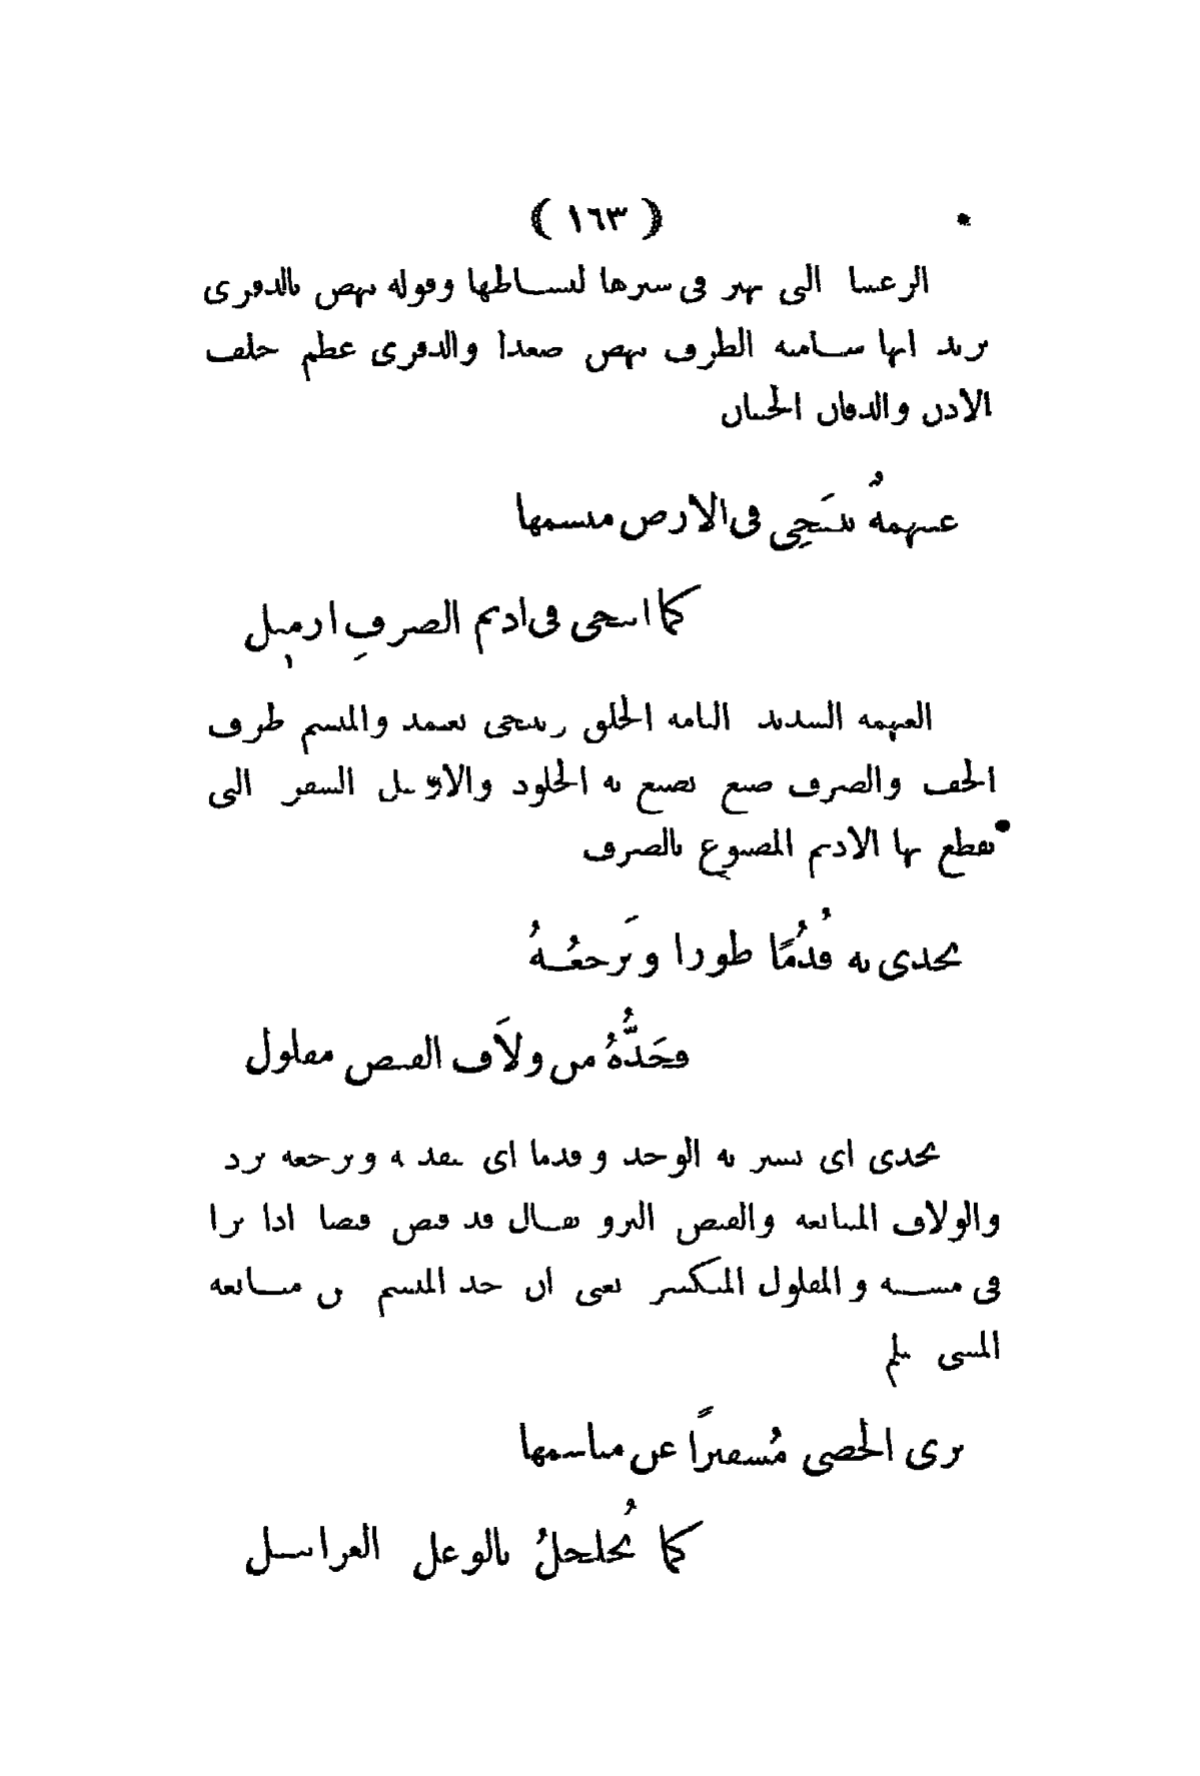 ﴿ ١٦٣ ﴾
الرعشا التى تهتز فى سيرها لنشاطها وقوله ينهض بالذفرى
يريد انها سامية الطرف ينهض صعدا والذفرى عظم خلف
الاذن والدفان الجنبان
عيهمةٌ ينتَحِى فى الارض منسمها
كما انتحى فى اديم الصرفِ ازميل
العيهمة الشديد التامة الخلق وينتحى يعتمد والمنسم طرف
الخف والصرف صبغ تصبغ به الجلود والازميل الشفر التى
يقطع بها الاديم المصبوغ بالصرف
تخدى به قُدُمًا طورا وتَرجعُهُ
فحَدُّهُ من ولاَف القبص مفلول
تخدى اى تسير به الوخد وقدما اى تقدمه وترجعه ترد
والولاف المتابعة والقبص النزو يقال قد قبص قبصا اذا نزا
فى مشيه والمفلول المنكسر يعنى ان حد المنسم من متابعة
المشى يثلم
ترى الحصى مُشفترًا عن مناسمها
كما تُجلجلُ بالوغل الغرابيل